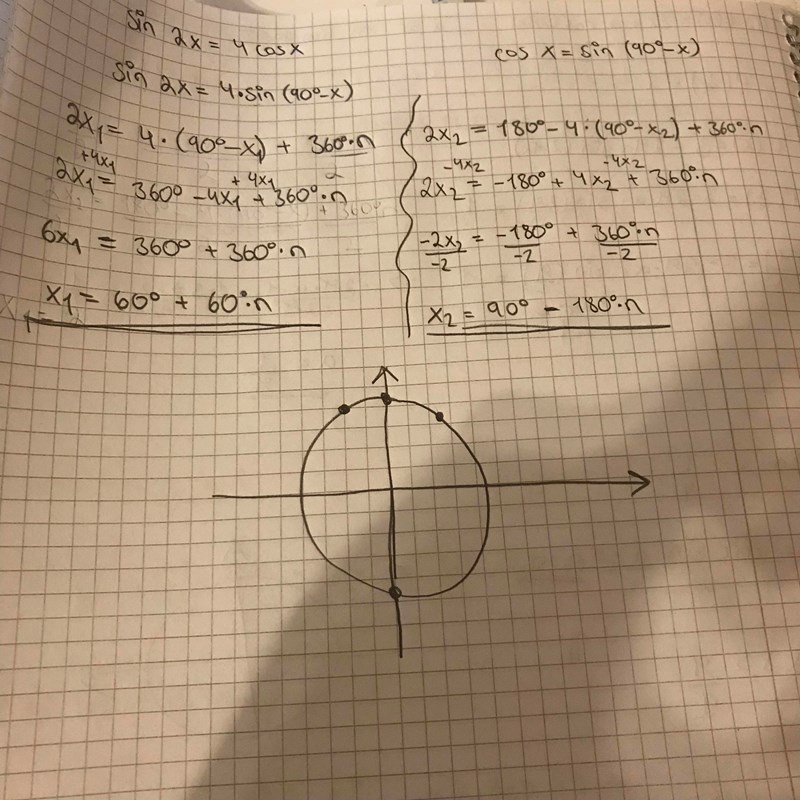 sin 2x = 4 cos x
cos x = sin (90°-x)
sin 2x = 4·sin (90°-x)
2x₁ = 4·(90°-x₁) + 360°·n
+4x₁ +4x₁
2x₁ = 360° -4x₁ + 360°·n
6x₁ = 360° + 360°·n
x₁ = 60° + 60°·n
2x₂ = 180° - 4·(90°-x₂) + 360°·n
-4x₂ -4x₂
2x₂ = -180° + 4x₂ + 360°·n
-2x₂/-2 = -180°/-2 + 360°·n/-2
x₂ = 90° - 180°·n